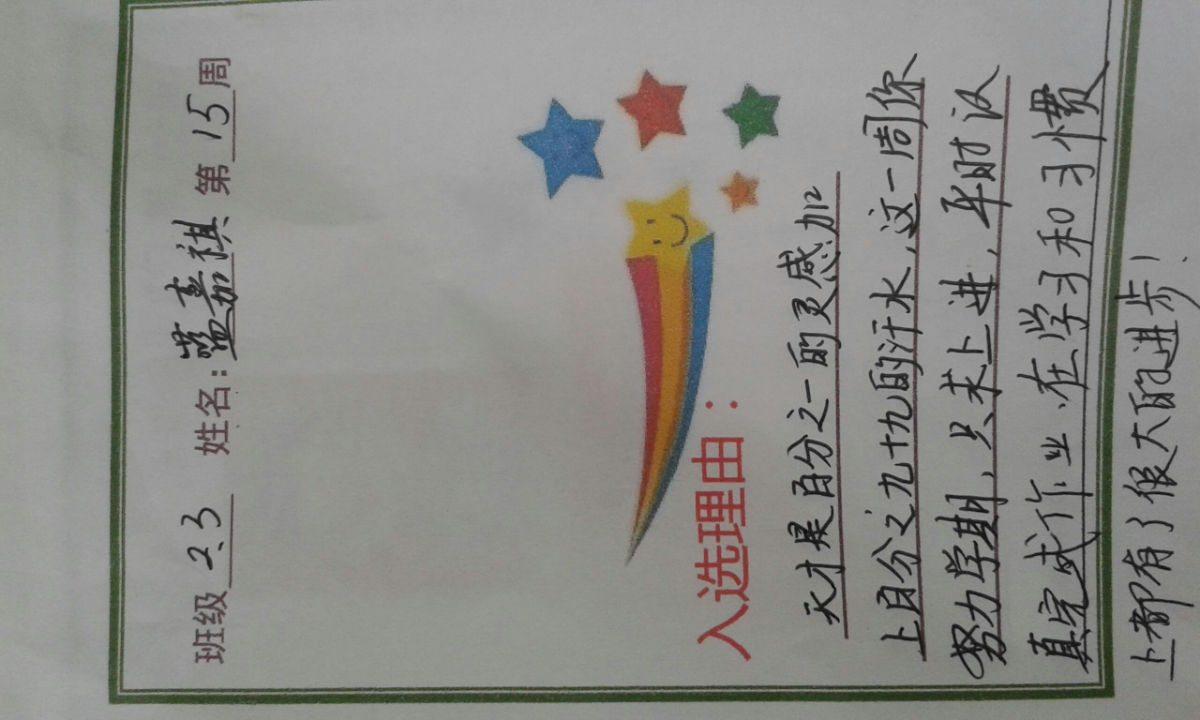 班级 2.3 姓名: 蓝嘉祺 第 15 周
入选理由:
天才是百分之一的灵感加
上百分之九十九的汗水,这一周你
努力学期,只求上进,平时认
真完成作业.在学习和习惯
上都有了很大的进步!